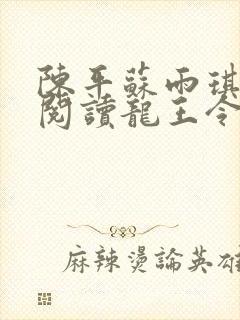 陳平蘇雨琪
閱讀龍王令
麻辣燙論英雄